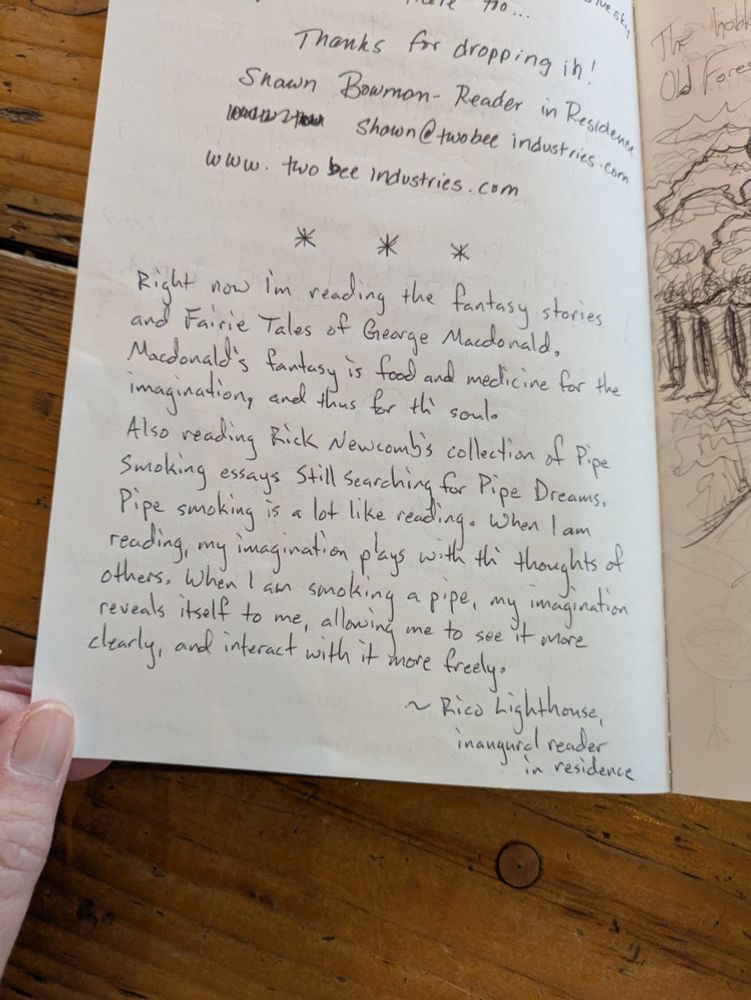 There too...
Thanks for dropping in!
Shawn Bowman - Reader in Residence
Shawn@twobee industries.com
www. two bee industries.com
* * *
Right now i'm reading the fantasy stories
and Fairie Tales of George Macdonald.
Macdonald's fantasy is food and medicine for the
imagination, and thus for thi soul.
Also reading Rick Newcomb's collection of Pipe
Smoking essays Still Searching for Pipe Dreams.
Pipe smoking is a lot like reading. When I am
reading, my imagination plays with thi thoughts of
others. When I am smoking a pipe, my imagination
reveals itself to me, allowing me to see it more
clearly, and interact with it more freely.
~ Rico Lighthouse,
inaugural reader
in residence
The
Old